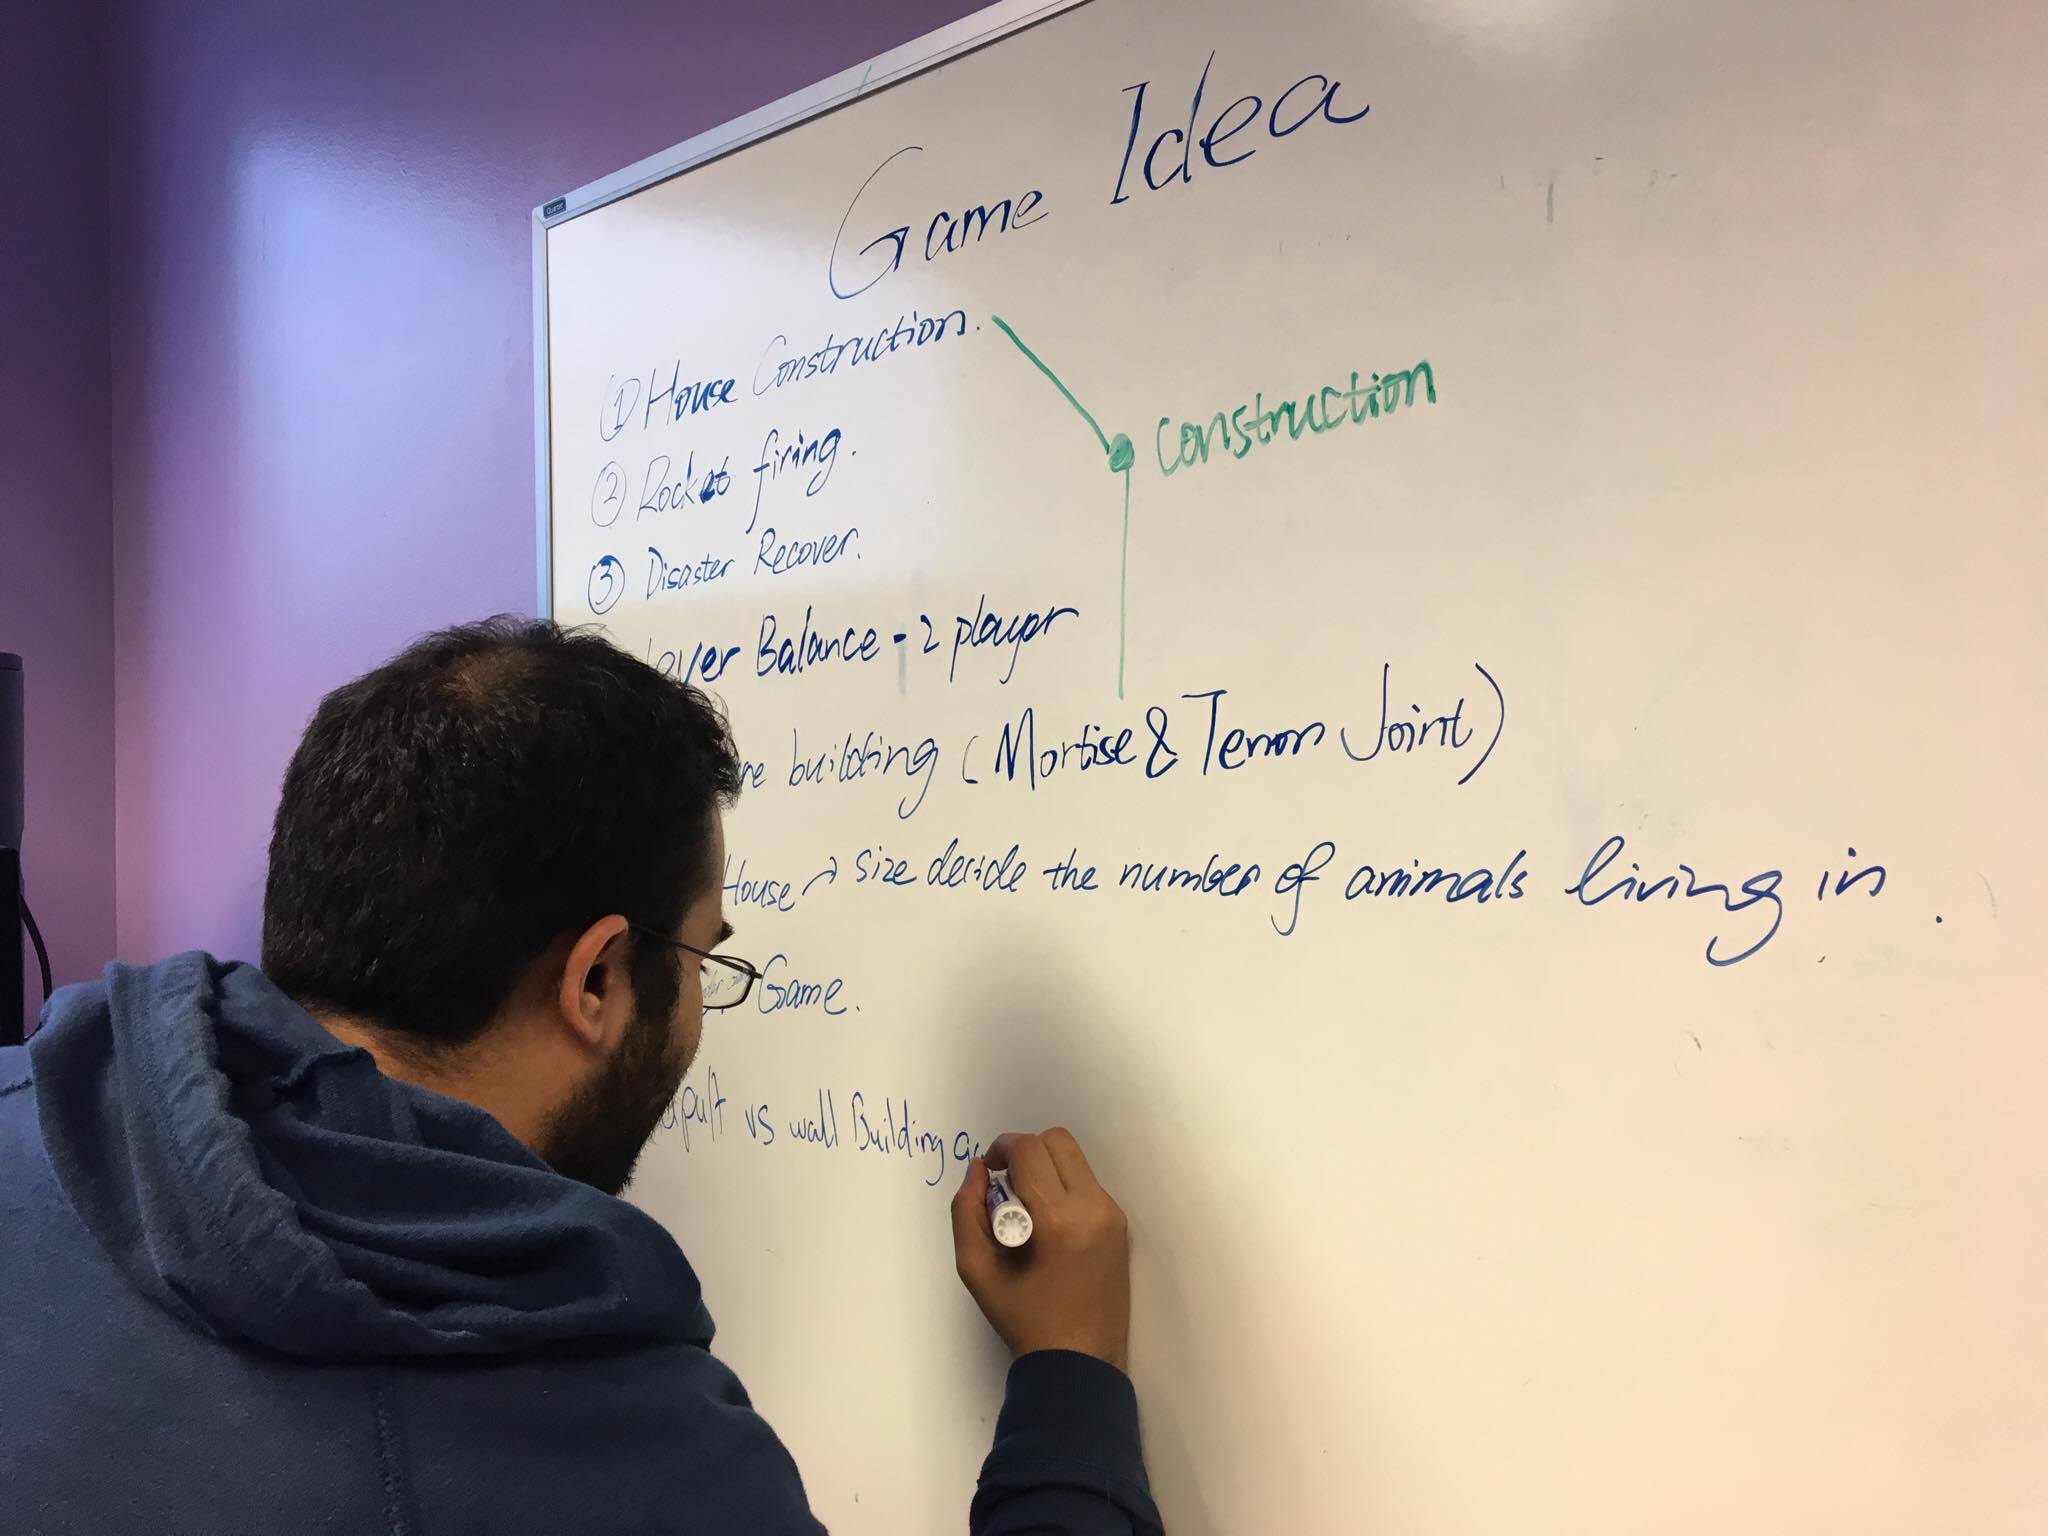 Game Idea
① House Construction.
construction
② Rocket firing.
③ Disaster Recover.
Balance - 2 player
building (Mortise & Tenon Joint)
House → size decide the number of animals living in.
Game.
vs wall Building
Quartet